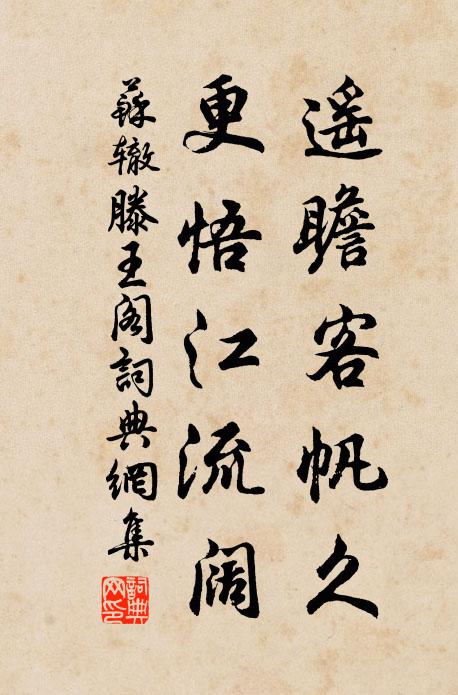 遥瞻客帆久
更悟江流阔
蘇辙滕王阁詞典網集
詞典
网印